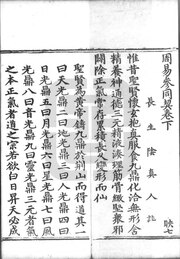 周易參同契卷下
映七
長生陰真人註
惟昔聖賢懷玄抱真服食九鼎化洽無形含
精養神通德三元精液湊理筋骨緻堅眾邪
闢除正氣常存累積長久變形而仙
聖賢為黃帝鑄九鼎於荆山而得道其一
曰天光鼎二曰地光鼎三曰人光鼎四曰
日光鼎五曰月光鼎六曰星光鼎七曰風
光鼎八曰音光鼎九曰靈光鼎三元雲氣
之本正氣者道之宗若欲白日昇天合成